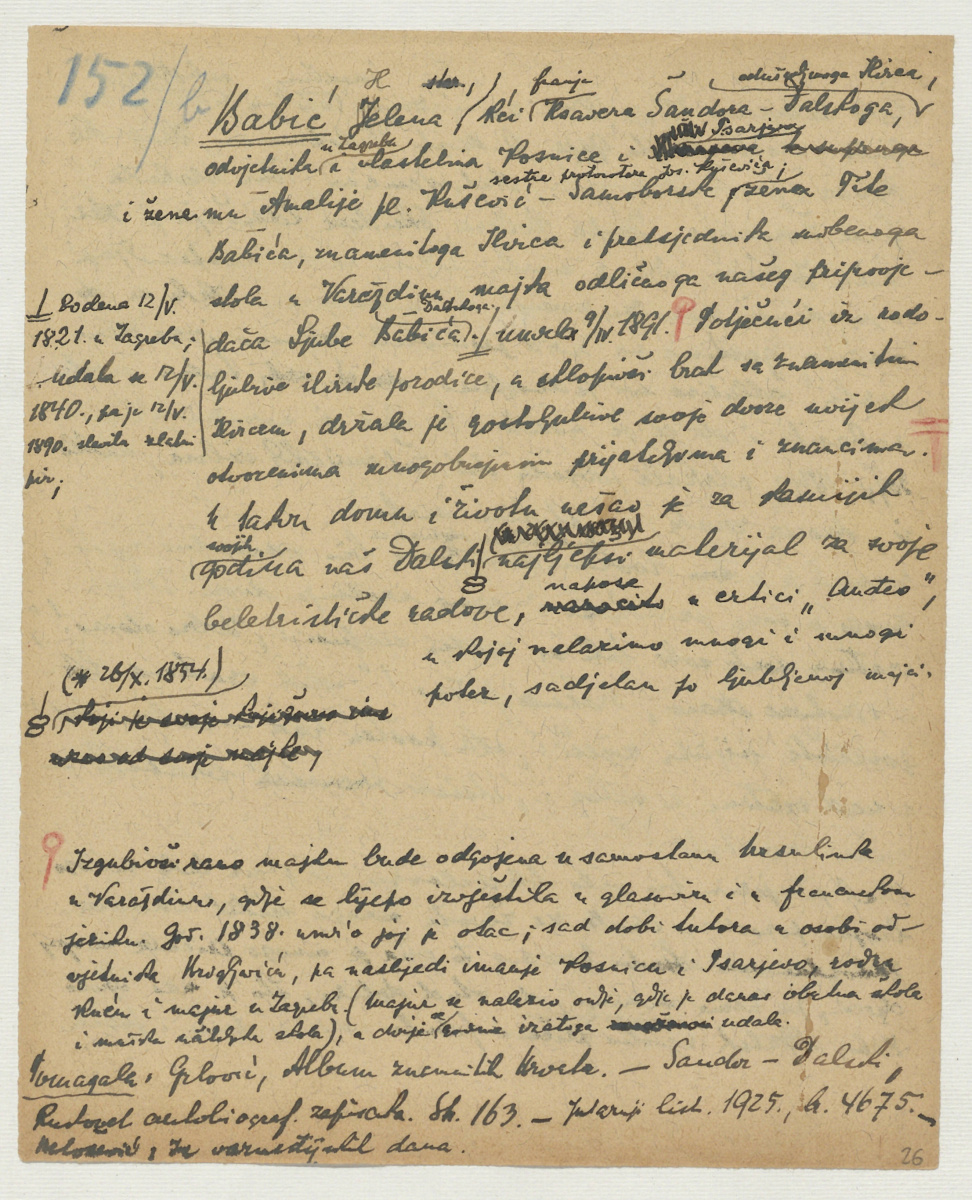 152/b
odusevljenoga Ilirca,
Babić Jelena, kći franje Ksavera Šandora-Dalskoga,
odvjetnika u Zagrebu i vlastelina Kosnice i Psarjevo
sestre protonotara Jos. Kuševića;
i žene mu Amalije pl. Kušević-Samoborske, žena Tite
Babića, znamenitoga Ilirca i pretsjednika sudbenoga
stola u Varaždinu, majka odličnoga našeg pripovje-
dača Ljube Babića Dalskoga. / umrla 9/IV. 1891. Potječući iz rodo-
ljubive ilirske porodice, a sklopivši brak sa znamenitim
Ilircem, držala je gostoljubive svoje dvore uvijek
otvorenima mnogobrojnim prijateljima i znancima.
U takvu domu i životu našao je za kasnijih
svojih
godina naš Dalski najljepši materijal za svoje
beletrističke radove, napose u crtici „Anđeo",
u kojoj nalazimo mnogi i mnogi
potez, sadjelan po ljubljenoj majci.
1 Rođena 12/V.
1821. u Zagrebu;
udala se 12/V.
1840., pa je 12/V.
1890. slavila zlatni
pir;
(* 26/X. 1854.)
Izgubivši rano majku bude odgojena u samostanu Ursulinka
u Varaždinu, gdje se lijepo izvještila u glasoviru i u francuskom
jeziku. God. 1838. umr'o joj je otac; sad dobi tutora u osobi od-
vjetnika, pa naslijedi imanje Kosnica i Psarjevo,
kuću i majur u Zagrebu (majur se nalazio ondje, gdje je danas obrtna škola
i muška učiteljska škola), a dvije godine iza toga se udala.
Pomagala: Grlović, Album znamenitih Hrvata. — Sandor-Dalski,
Rukopet autobiograf. zapisaka. Str. 163. — Jutarnji list. 1925., br. 4675. —
dana.
26